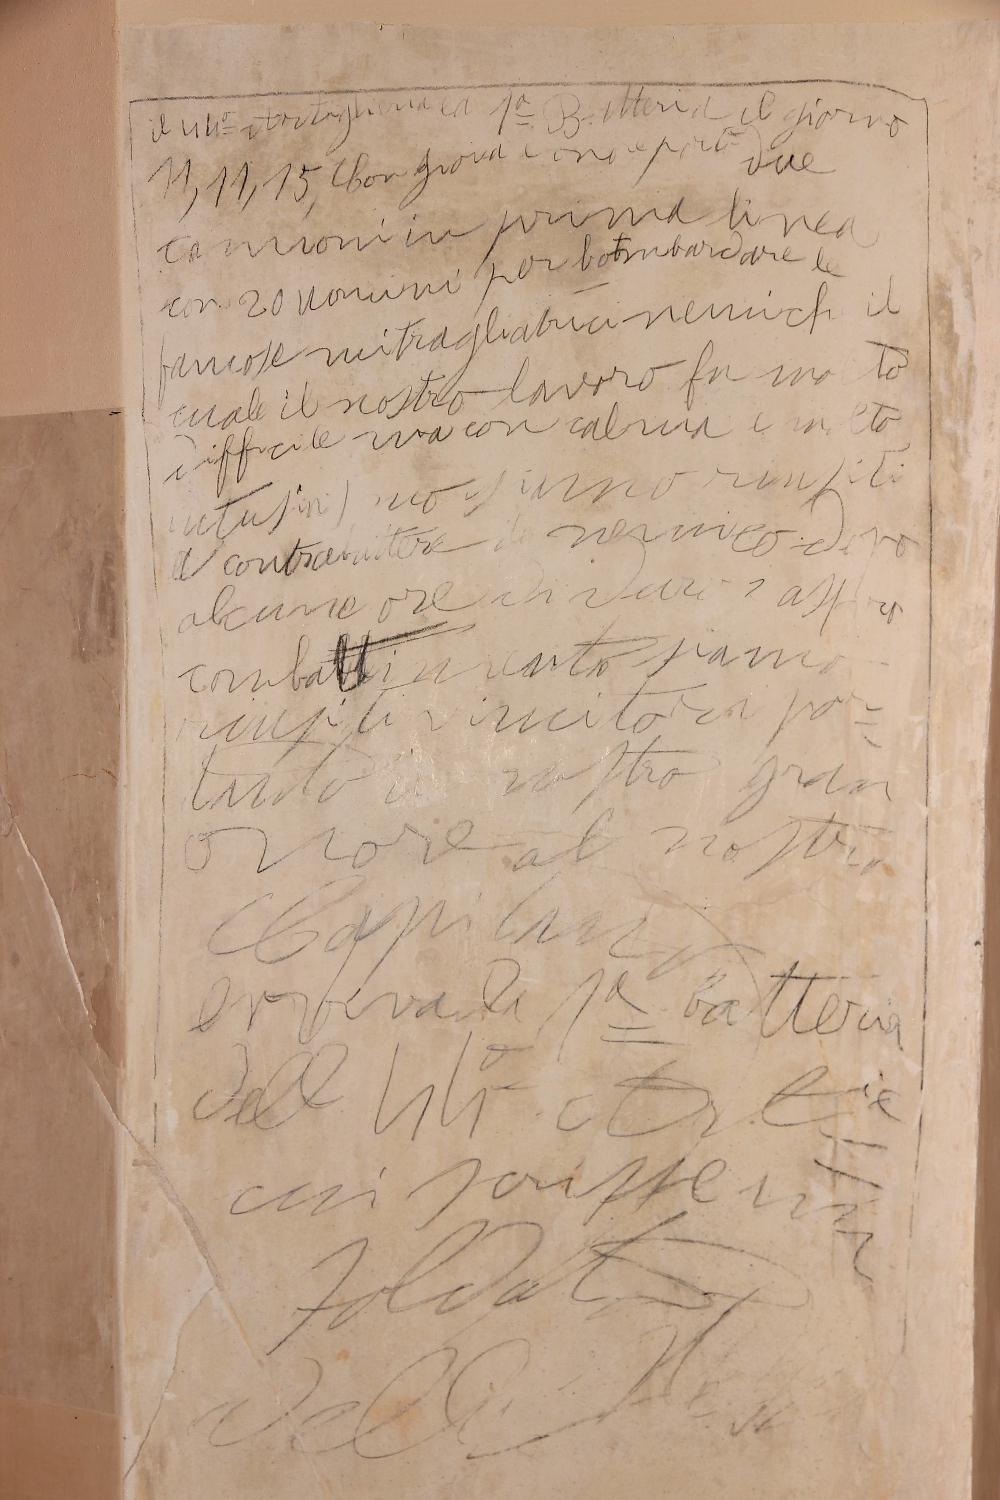 il 44° Artiglieria la 1ª Batteria il giorno
11, 11, 15, Con gioia portò due
cannoni in prima linea
con 20 uomini per bombardare le
famose mitragliatrici nemich il
cuale il nostro lavoro fu molto
difficile ma con calma e molto
siamo riusiti
a contrabattere il nemico dopo
alcune ore di duro e aspro
combattimento siamo
riusiti vincitori por=
tando il nostro gran
onore al nostro
Capitano
evviva la 1ª batteria
dell 44°
cui scrisse un
Soldato